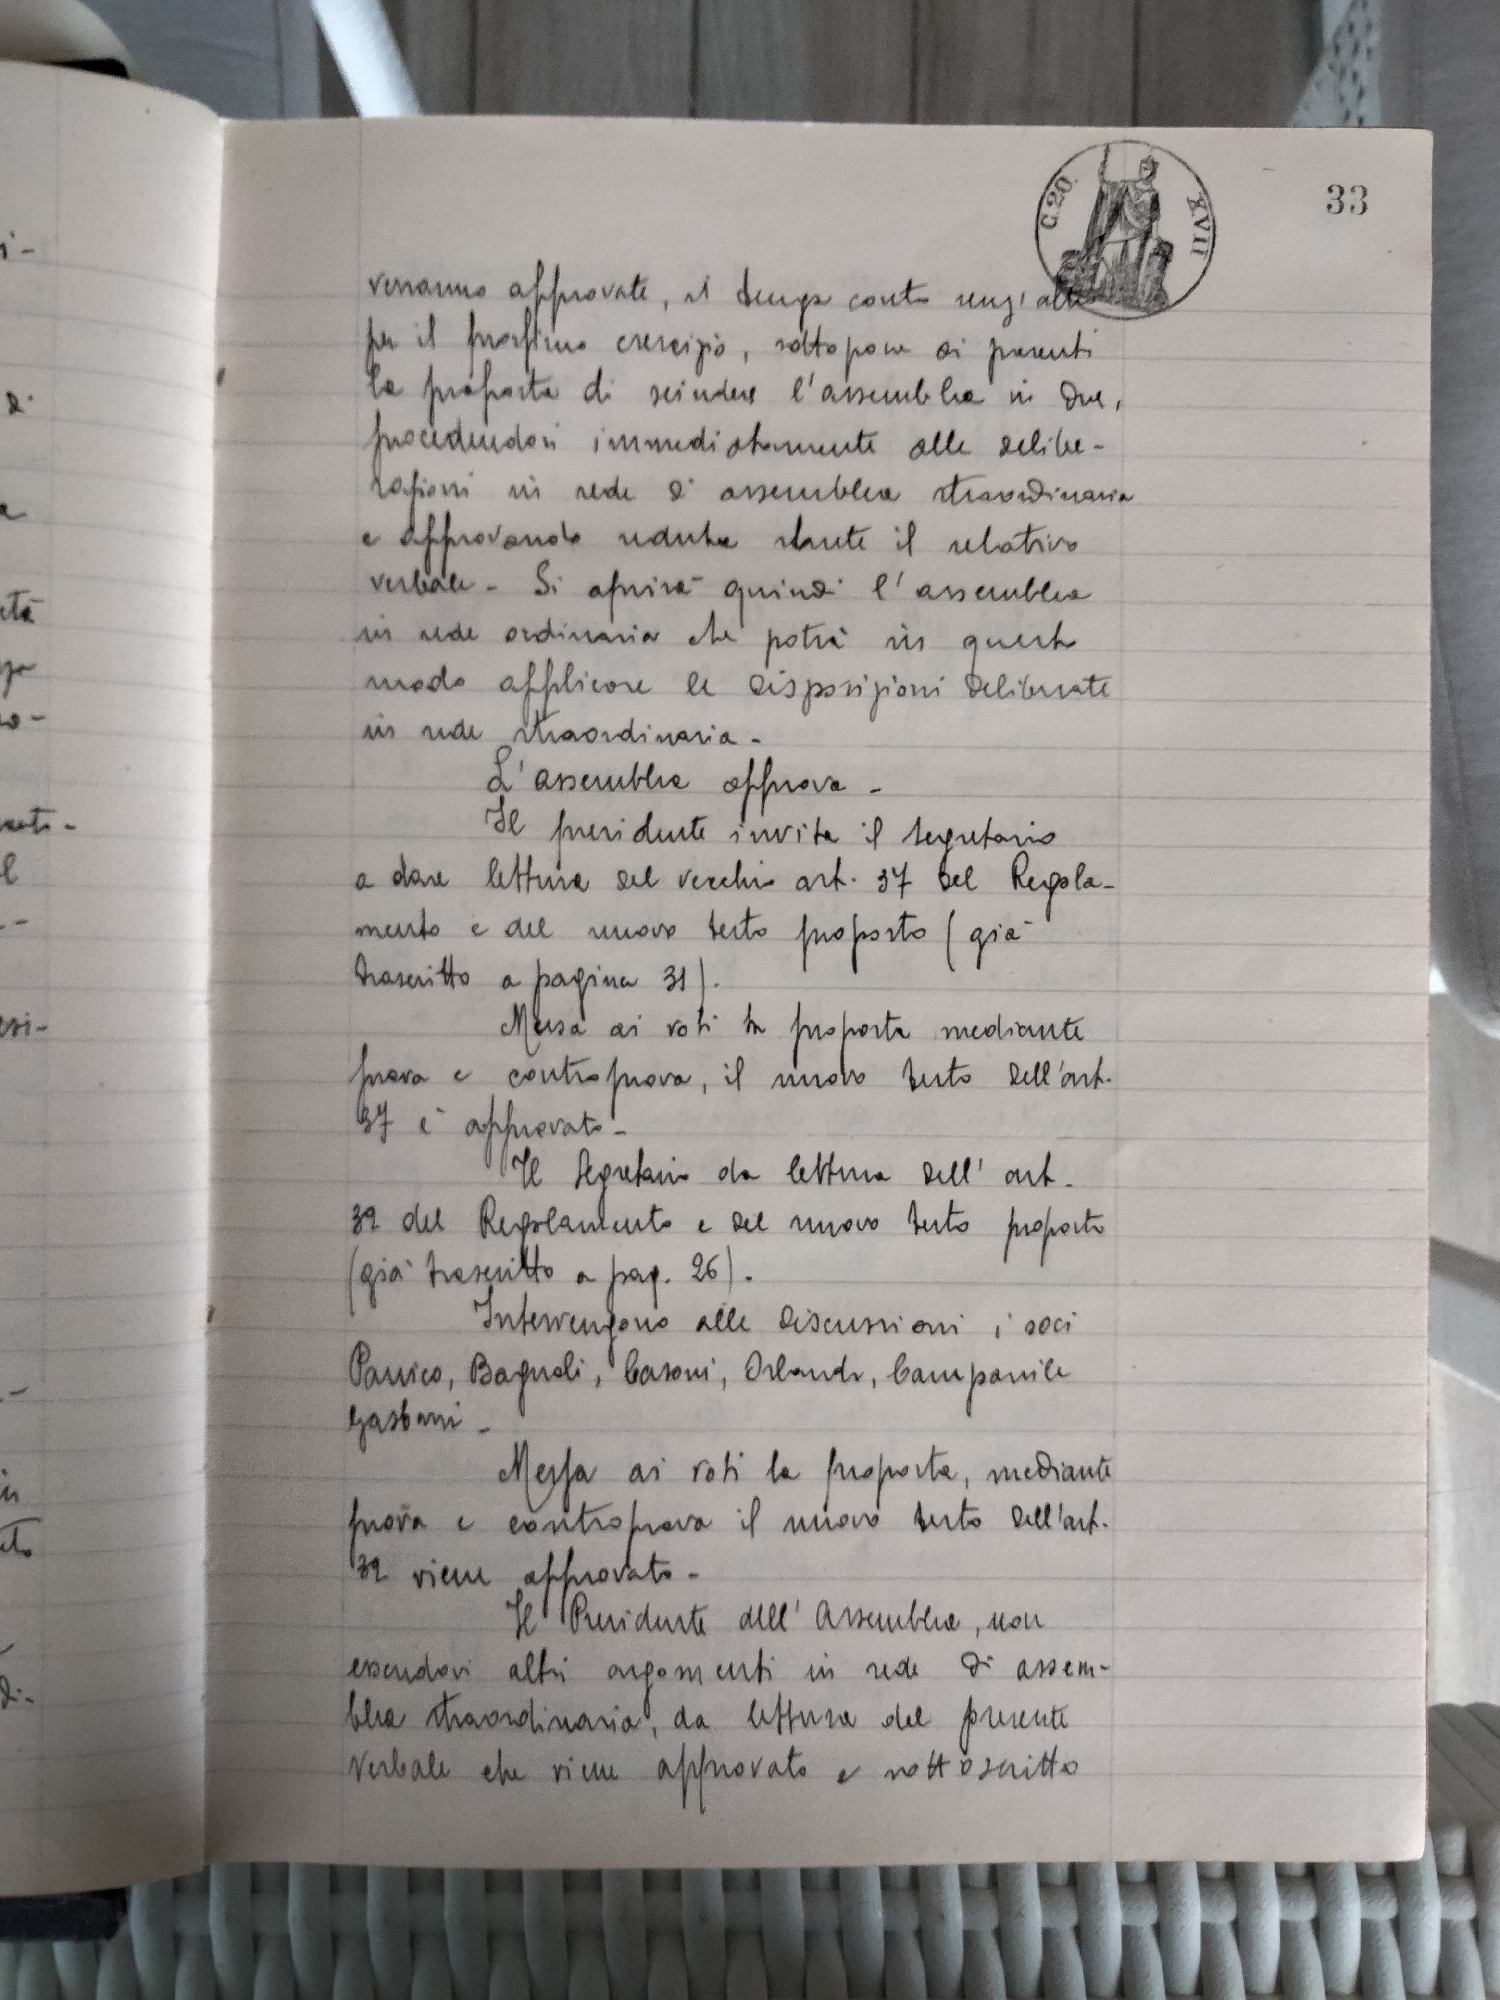 33
C. 20.
XVII
verranno approvate, si tenga conto senz'altro
per il prossimo esercizio, sottopone ai presenti
la proposta di scindere l'assemblea in due,
procedendosi immediatamente alle delibe-
razioni in sede di assemblea straordinaria
e approvando seduta stante il relativo
verbale - Si aprirà quindi l'assemblea
in sede ordinaria che potrà in questo
modo applicare le disposizioni deliberate
in sede straordinaria -
L'assemblea approva -
Il presidente invita il segretario
a dare lettura del vecchio art. 37 del Regola-
mento e del nuovo testo proposto (già
trascritto a pagina 31).
Messa ai voti la proposta mediante
prova e controprova, il nuovo testo dell'art.
37 è approvato -
Il Segretario da lettura dell'art.
39 del Regolamento e del nuovo testo proposto
(già trascritto a pag. 26).
Intervengono alle discussioni i soci
Panico, Bagnoli, Casoni, Orlandi, Campanile
Gasbani -
Messa ai voti la proposta, mediante
prova e controprova il nuovo testo dell'art.
39 viene approvato -
Il Presidente dell'Assemblea, non
essendovi altri argomenti in sede di assem-
blea straordinaria, da lettura del presente
verbale che viene approvato e sottoscritto
di
a
età